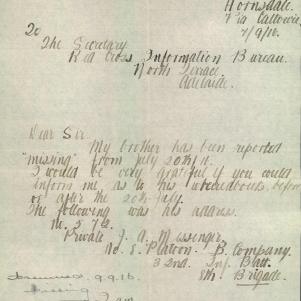 Hornsdale.
Via Caltowie,
7/9/16.
To
The Secretary
Red Cross Information Bureau.
North Terrace.
Adelaide.
Dear Sir.
My brother has been reported
"missing" from July 20th/16.
I would be very grateful if you could
inform me as to his whereabouts, before
or after the 20th July.
The following was his address.
No. 572.
Private J. A. Messenger,
No. 8. Platoon B. Company.
32nd. Inf. Batt.
8th. Brigade.
9.9.16.